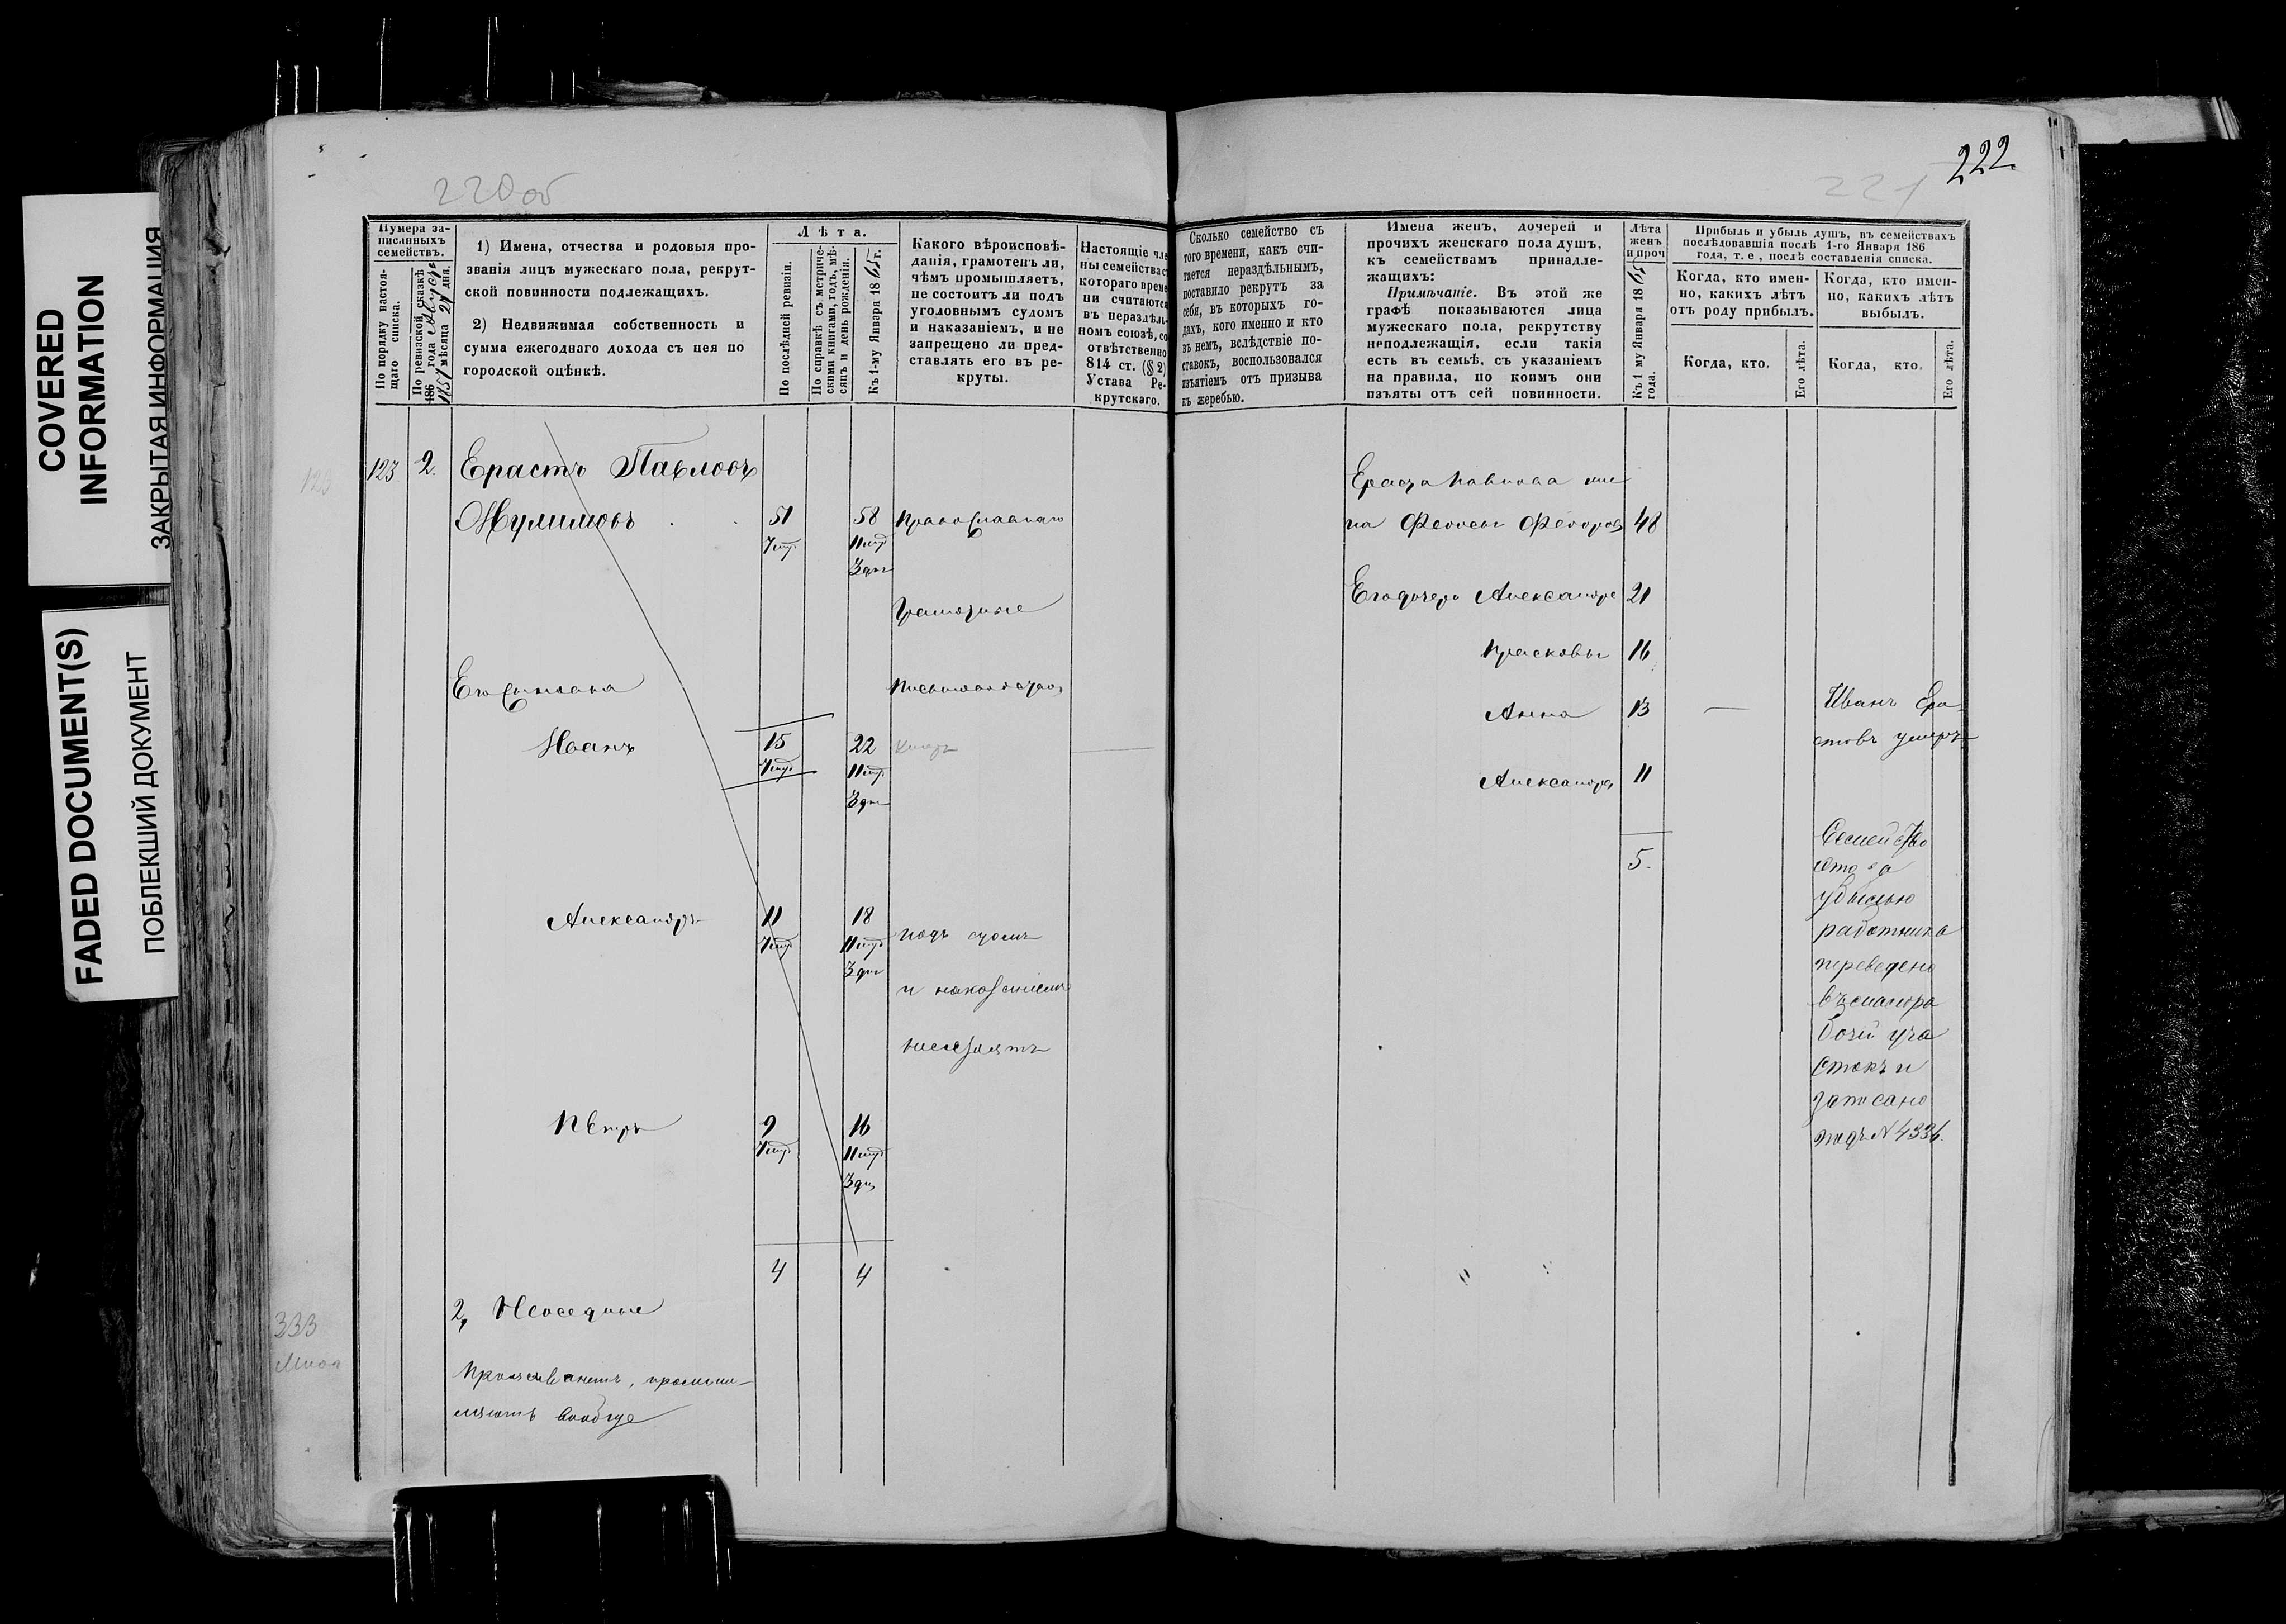 COVERED
INFORMATION
ЗАКРЫТАЯ ИНФОРМАЦИЯ
FADED DOCUMENT(S)
ПОБЛЕКШИЙ ДОКУМЕНТ
220об
Нумера за-
писанныхъ
семействъ.
По порядку настоя-
щаго списка.
По ревизской сказкѣ
186 года
1857 мѣсяца 27 дня.
1) Имена, отчества и родовыя про-
званія лицъ мужескаго пола, рекрут-
ской повинности подлежащихъ.
2) Недвижимая собственность и
сумма ежегоднаго дохода съ нея по
городской оцѣнкѣ.
Лѣта.
По послѣдней ревизіи.
По справкѣ съ метриче-
скими книгами, годъ, мѣ-
сяцъ и день рожденія.
Къ 1-му Января 1865 г.
Какого вѣроисповѣ-
данія, грамотенъ ли,
чѣмъ промышляетъ,
не состоитъ ли подъ
уголовнымъ судомъ
и наказаніемъ, и не
запрещено ли пред-
ставлять его въ ре-
круты.
Настоящіе чле
ны семейства с
котораго време
ни считаются
въ нераздѣль-
номъ союзѣ, со
отвѣтственно
814 ст. (§ 2)
Устава Ре-
крутскаго.
123
123 2. Ерастъ Павловъ
51 58 Православнаго
7 мѣ 11 мѣ
3 дн
Грамотные
Его сыновья
Иванъ 15 22 умеръ
7 мѣ 11 мѣ
3 дн
Александръ 11 18
7 мѣ 11 мѣ
3 дн
подъ судомъ
и наказаніемъ
несостоятъ
Петръ 9 16
7 мѣ 11 мѣ
3 дн
4 4
2, Неоседлые
Проживаетъ, промыш-
ляютъ вообще
333
222
221
Сколько семейство съ
того времени, какъ счи-
тается нераздѣльнымъ,
поставило рекрутъ за
себя, въ которыхъ го-
дахъ, кого именно и кто
въ немъ, вслѣдствіе по-
ставокъ, воспользовался
изъятіемъ отъ призыва
къ жеребью.
Имена женъ, дочерей и
прочихъ женскаго пола душъ,
къ семействамъ принадле-
жащихъ:
Примѣчаніе. Въ этой же
графѣ показываются лица
мужескаго пола, рекрутству
неподлежащія, если такія
есть въ семьѣ, съ указаніемъ
на правила, по коимъ они
изъяты отъ сей повинности.
Лѣта
женъ
и проч
Къ 1 му Января 1865
года.
Прибыль и убыль душъ, въ семействахъ
послѣдовавшія послѣ 1-го Января 186
года, т. е, послѣ составленія списка.
Когда, кто имен-
но, какихъ лѣтъ
отъ роду прибылъ.
Когда, кто имен-
но, какихъ лѣтъ
выбылъ.
Когда, кто.
Его лѣта.
Когда, кто.
Его лѣта.
Ераста Павлова же
на Федосья Федорова 48
Его дочери Александра 21
Прасковья 16
Анна 13
Александра 11
5.
Иванъ Ера
стовъ умеръ
Семейство
это за
убылью
работника
переведено
въ малора
бочій уча
стокъ и
записано
подъ № 4336.